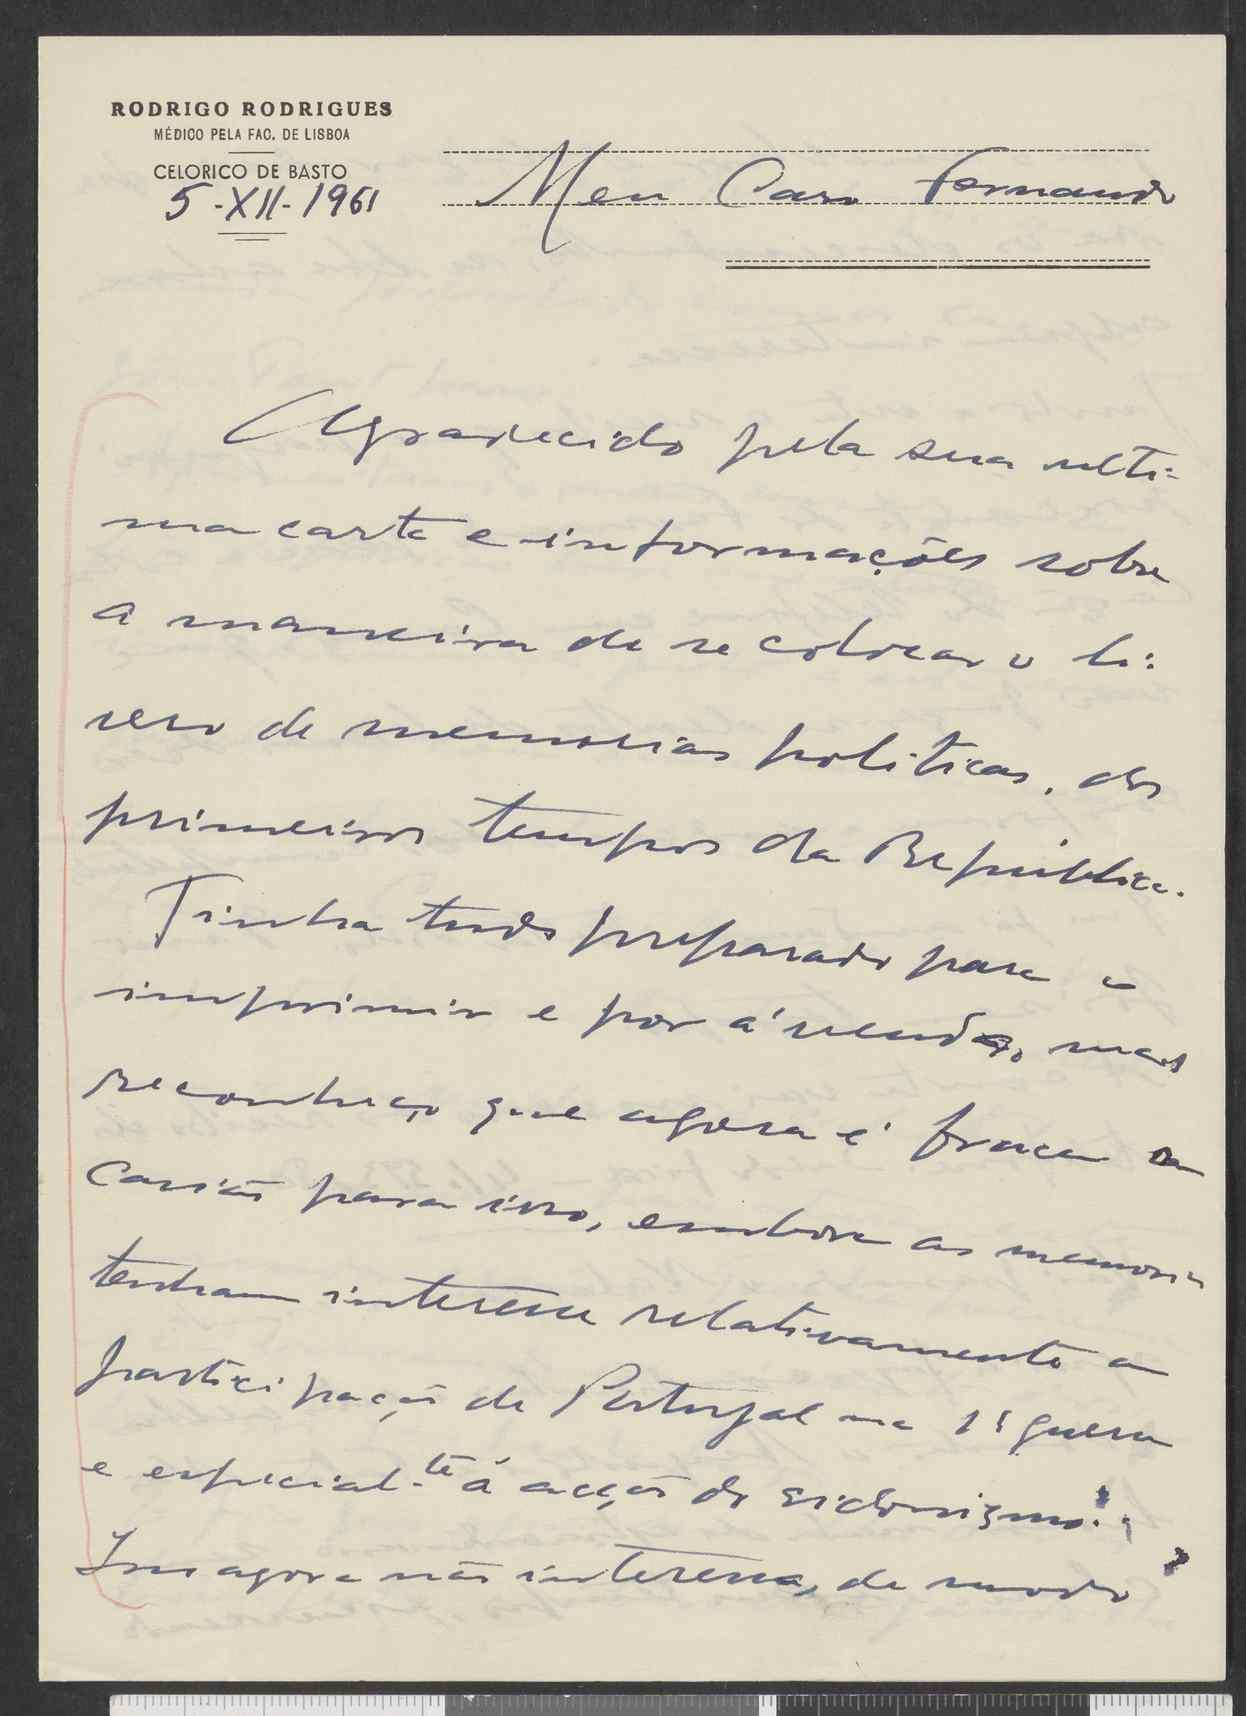 RODRIGO RODRIGUES
MÉDICO PELA FAC. DE LISBOA
CELORICO DE BASTO
5-XII-1961
Meu Caro Fernando
Agradecido pela sua ulti-
ma carta e informações sobre
a maneira de se colocar o li-
vro de memorias politicas, dos
primeiros tempos da Républica.
Tinha tudo preparado para o
imprimir e por á venda, mas
reconheço que agora é fraca a
casião para isso, embora as memorias
tenham interesse relativamente a
participação de Portugal na 1ª guerra
e especial.te á acção do sidonismo!
Isso agora não interessa, de modo